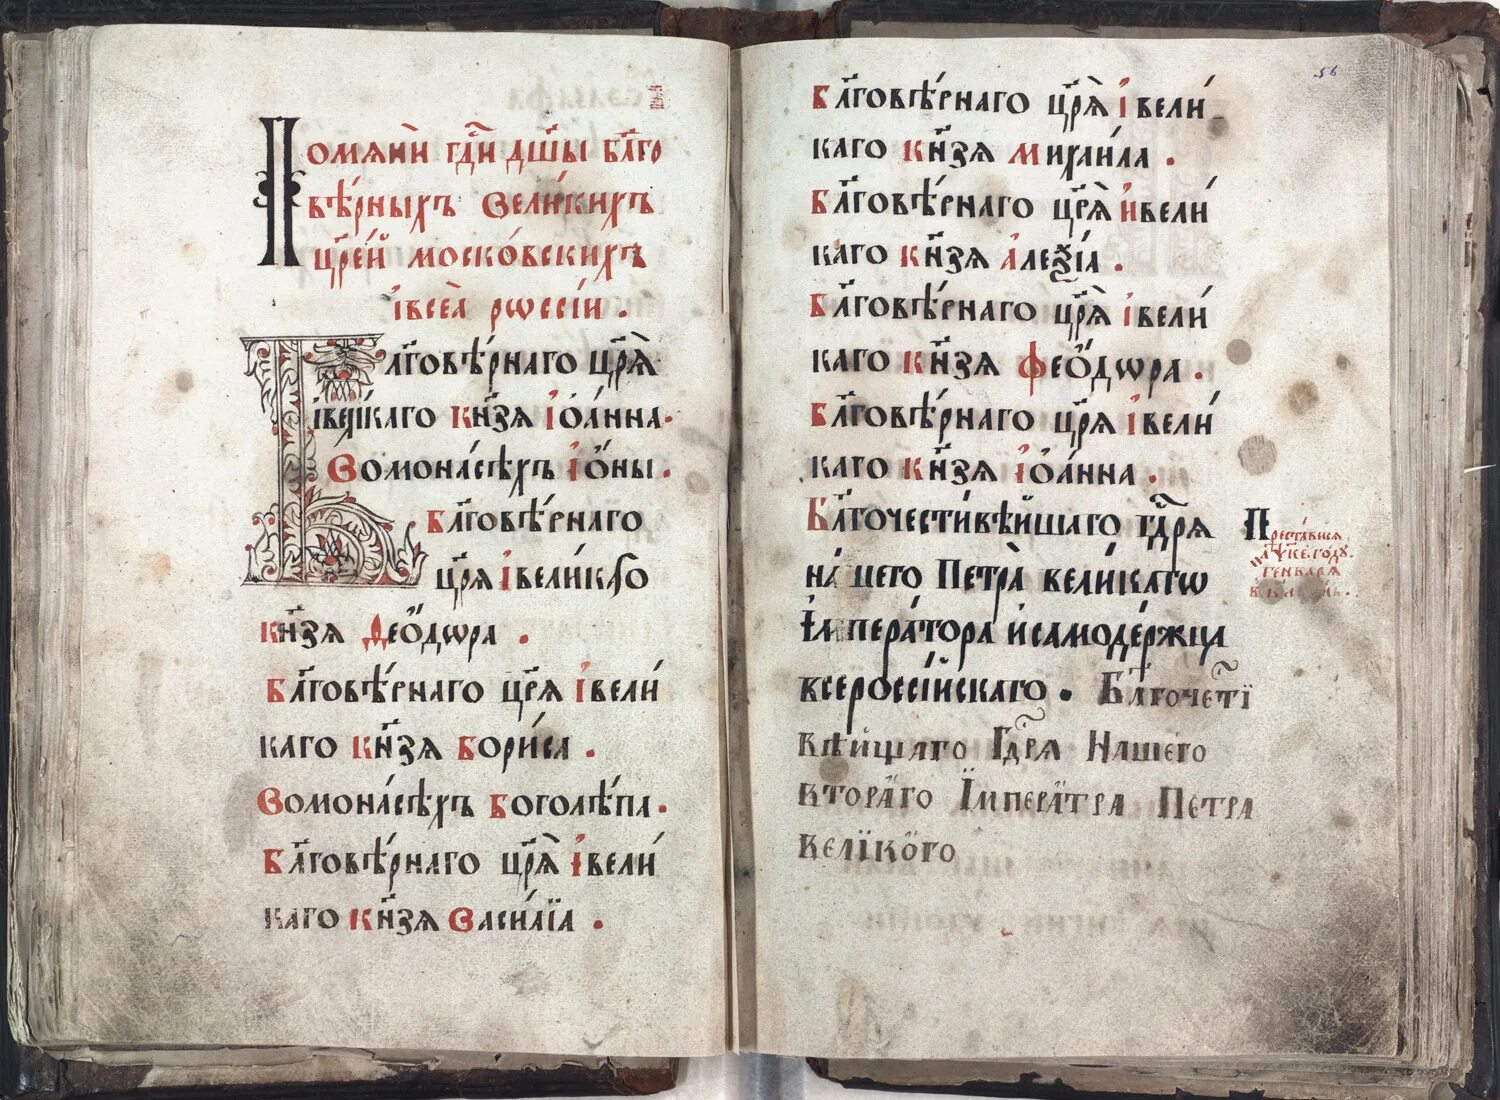 Помѧни гдⷭ҇и дш҃ы блг҃о
вѣ́рныхъ вели́кихъ
цр҃е́й моско́вскихъ
і҆всеѧ̀ рѡссі́и .
Блг҃овѣ́рнаго цр҃ѧ̀
і҆вели́каго кн҃зѧ і҆ѡа́нна .
Вомона́сѣхъ і҆ѡ́ны .
Блг҃овѣ́рнаго
цр҃ѧ̀ і҆вели́каго
кн҃зѧ Ѳео́дѡра .
Блг҃овѣ́рнаго цр҃ѧ̀ і҆вели́
каго кн҃зѧ Бори́са .
Вомона́сѣхъ Боголѣ́па .
Блг҃овѣ́рнаго цр҃ѧ̀ і҆вели́
каго кн҃зѧ Васи́лїа .
56
Блг҃овѣ́рнаго цр҃ѧ̀ і҆вели́
каго кн҃зѧ михаи́ла .
Блг҃овѣ́рнаго цр҃ѧ̀ и҆вели́
каго кн҃зѧ а҆леѯі́а .
Блг҃овѣ́рнаго цр҃ѧ̀ і҆вели́
каго кн҃зѧ Фео́дѡра .
Блг҃овѣ́рнаго цр҃ѧ̀ і҆вели́
каго кн҃зѧ і҆ѡа́нна .
Блг҃очестивѣ́йшаго гдⷭ҇рѧ
на́шего Петра̀ вели́кагѡ
і҆мпера́тора и҆самоде́ржца
всеросси́йскаго . Блг҃очеті
вѣйшаго Гдⷭ҇рѧ Нашего
втораго Їмператра Петра
Велїкого
Преставися
году
генваря